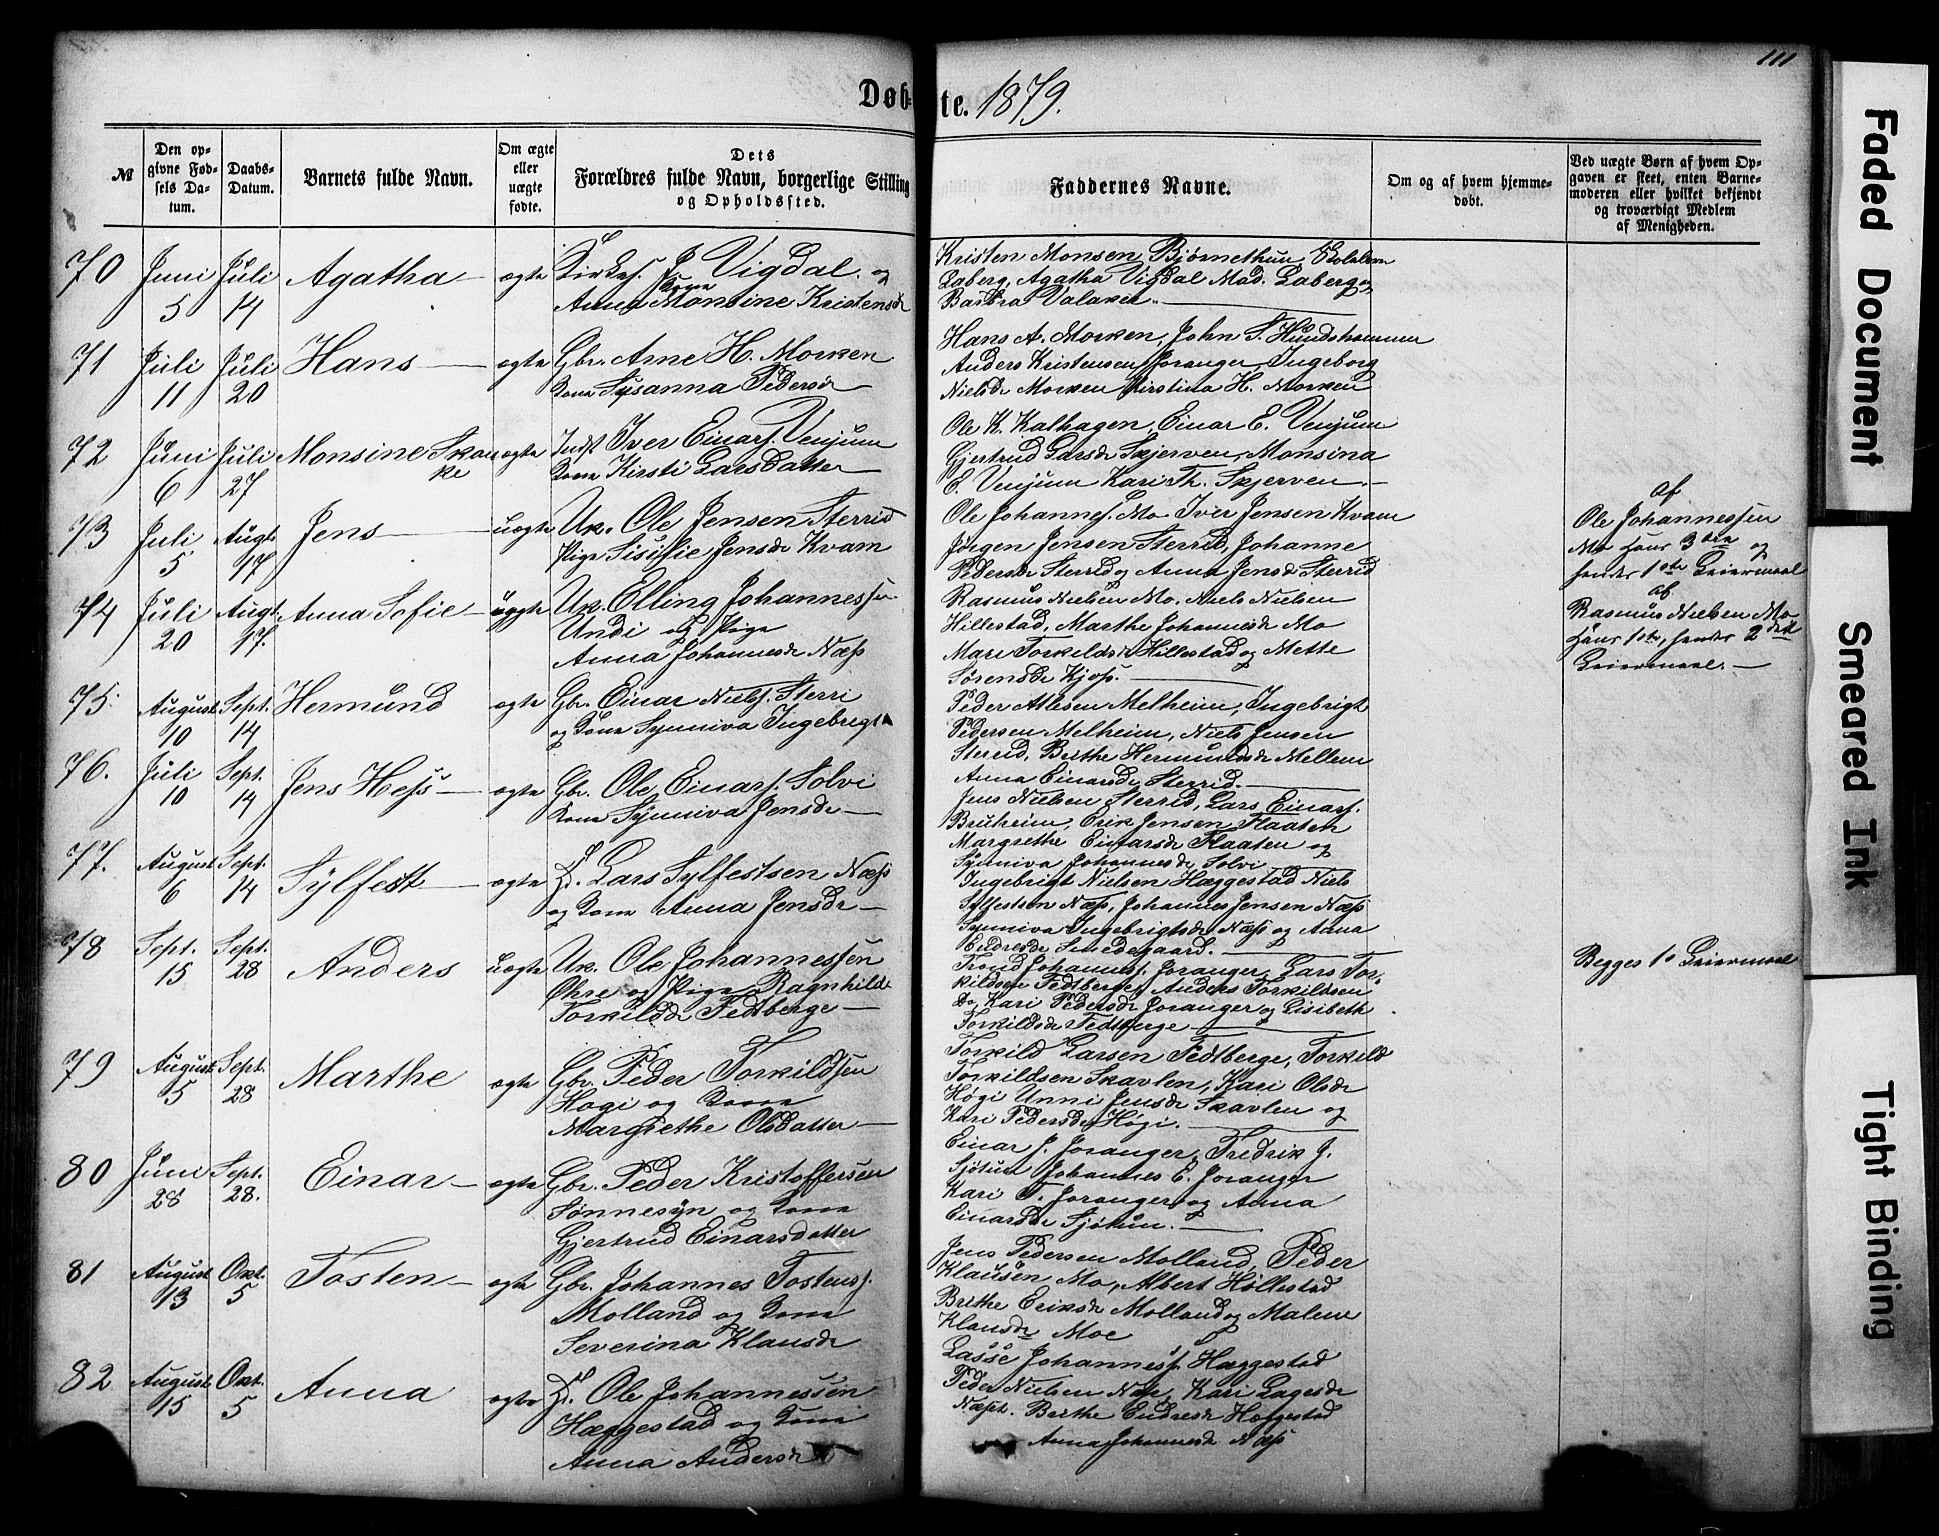 111
Døb-te. 1879.
№
Den op-
givne Fød-
sels Da-
tum.
Daabs-
Datum.
Barnets fulde Navn.
Om ægte
eller
uægte
fødte.
Dets
Forældres fulde Navn, borgerlige Stilling
og Opholdssted.
Faddernes Navne.
Om og af hvem hjemme-
døbt.
Ved uægte Børn af hvem Op-
gaven er skeet, enten Barne-
moderen eller hvilket bekjendt
og troværdigt Medlem
af Menigheden.
70 Juni 5 Juli 14 Agatha ægte Kirkes. J. Vigdal og
Kone
Anna Monsine Kristensdr
Kristen Monsen Bjørnethun,
Laberg, Agatha Vigdal Mad. Laberg og
Barbra Valaker.
71 Juli 11 Juli 20 Hans ægte Gbr. Arne H. Morken
Kone Susanna Pedersdr
Hans A. Morken, John S. Hundshammer
Anders Kristensen Joranger, Ingeborg
Nielsdr Morken Kirstina H. Morken
72 Juni 6 Juli 27 Monsine Skan
ke
ægte Indst Iver Einars. Venjum
Kone Kirsti Larsdatter
Ole K. Kalhagen, Einar E. Venjum
Gjertrud Larsdr Skjerven, Monsina
E. Venjum Kari Th. Skjerven.
73 Juli 5 Augt 17 Jens uægte Uk. Ole Jensen Sterrid
Pige Sisilie Jensdr Kvam
Ole Johannes. Mo Iver Jensen Kvam
Jørgen Jensen Sterrid, Johanne
Pedersdr Sterrid og Anna Jensdr Sterrid
af
Ole Johannessen
Mo hans 3die og
hendes 1ste Leiermaal
74 Juli 20 Augt 17. Anna Sofie uægte Uk. Elling Johannessen
Undi og Pige
Anna Johannesdr Næss
Rasmus Nielsen Mo. Niels Nielsen
Hillestad, Marthe Johannesdr Mo
Mari Torkildsdr Hillestad og Mette
Sørensdr Kjos.
af
Rasmus Nielsen Mo
hans 1ste, hendes 2det
Leiermaal.
75. August 10 Sept. 14 Hermund ægte Gbr. Einar Niels. Sterri
og Kone Synniva Ingebrigt
Peder Atlesen Melheim, Ingebrigt
Pedersen Melheim, Niels Jensen
Sterrid, Brithe Hermundsdr Mellem
Anna Einarsdr Sterrid.
76. Juli 10 Sept. 14 Jens Hess ægte Gbr. Ole Einars. Solvi
Kone Synniva Jensdr
Jens Nielsen Sterrid, Lars Einars.
Bruheim, Erik Jensen Flaaten
Margrethe Einarsdr Flaaten og
Synniva Johannesdr Solvi
77. August 6 Sept. 14 Sylfest ægte Lars Sylfestsen Næss
og Kone Anna Jensdr
Ingebrigt Nielsen Hæggestad Niels
Sylfestsen Næss, Johannes Jensen Næss
Synniva Ingebrigtsdr Næss og Anna
Endresdr Smedegaard.
78 Sept. 15 Sept. 28 Anders uægte Uk. Ole Johannessen
Øhre og Pige Ragnhild
Torkildsdr Fedtberge
Trond Johannes. Joranger, Lars Tor-
kildsen Fedtberge, Anders Torkildsen
Do, Kari Pedersdr Joranger og Lisibeth
Torkildsdr Fedtberge
Begges 1ste Leiermaal
79 August 5 Sept. 28 Marthe ægte Gbr. Peder Torkildsen
Høgi og Kone
Margrethe Olsdatter
Torkild Larsen Fedtberge, Torkild
Torkildsen Skavlen, Kari Olsdr
Høgi Unni Jensdr Skavlen og
Kari Pedersdr Høgi.
80 Juni 28 Sept. 28. Einar ægte Gbr. Peder Kristoffersen
Sønnesyn og Kone
Gjertrud Einarsdatter
Einar J. Joranger, Fredrik J.
Sjøtun Johannes E. Joranger
Kari T. Joranger og Anna
Einarsdr Sjøtun.
81 August 13 Okt. 5 Tosten ægte Gbr. Johannes Tostens.
Molland og Kone
Severina Klausdr
Jens Pedersen Molland, Peder
Klausen Mo, Albert Hillestad
Brithe Eriksdr Molland og Malene
Klausdr Moe
82 August 15 Okt. 5 Anna ægte Ole Johannessen
Hæggestad og Kone
Anna Andersdr
Lasse Johanness. Hæggestad
Peder Nielsen Næss, Kari Lagesdr
Næss. Brithe Endresdr Hæggestad
Anna Johannesdr Næss
Faded Document
Smeared Ink
Tight Binding